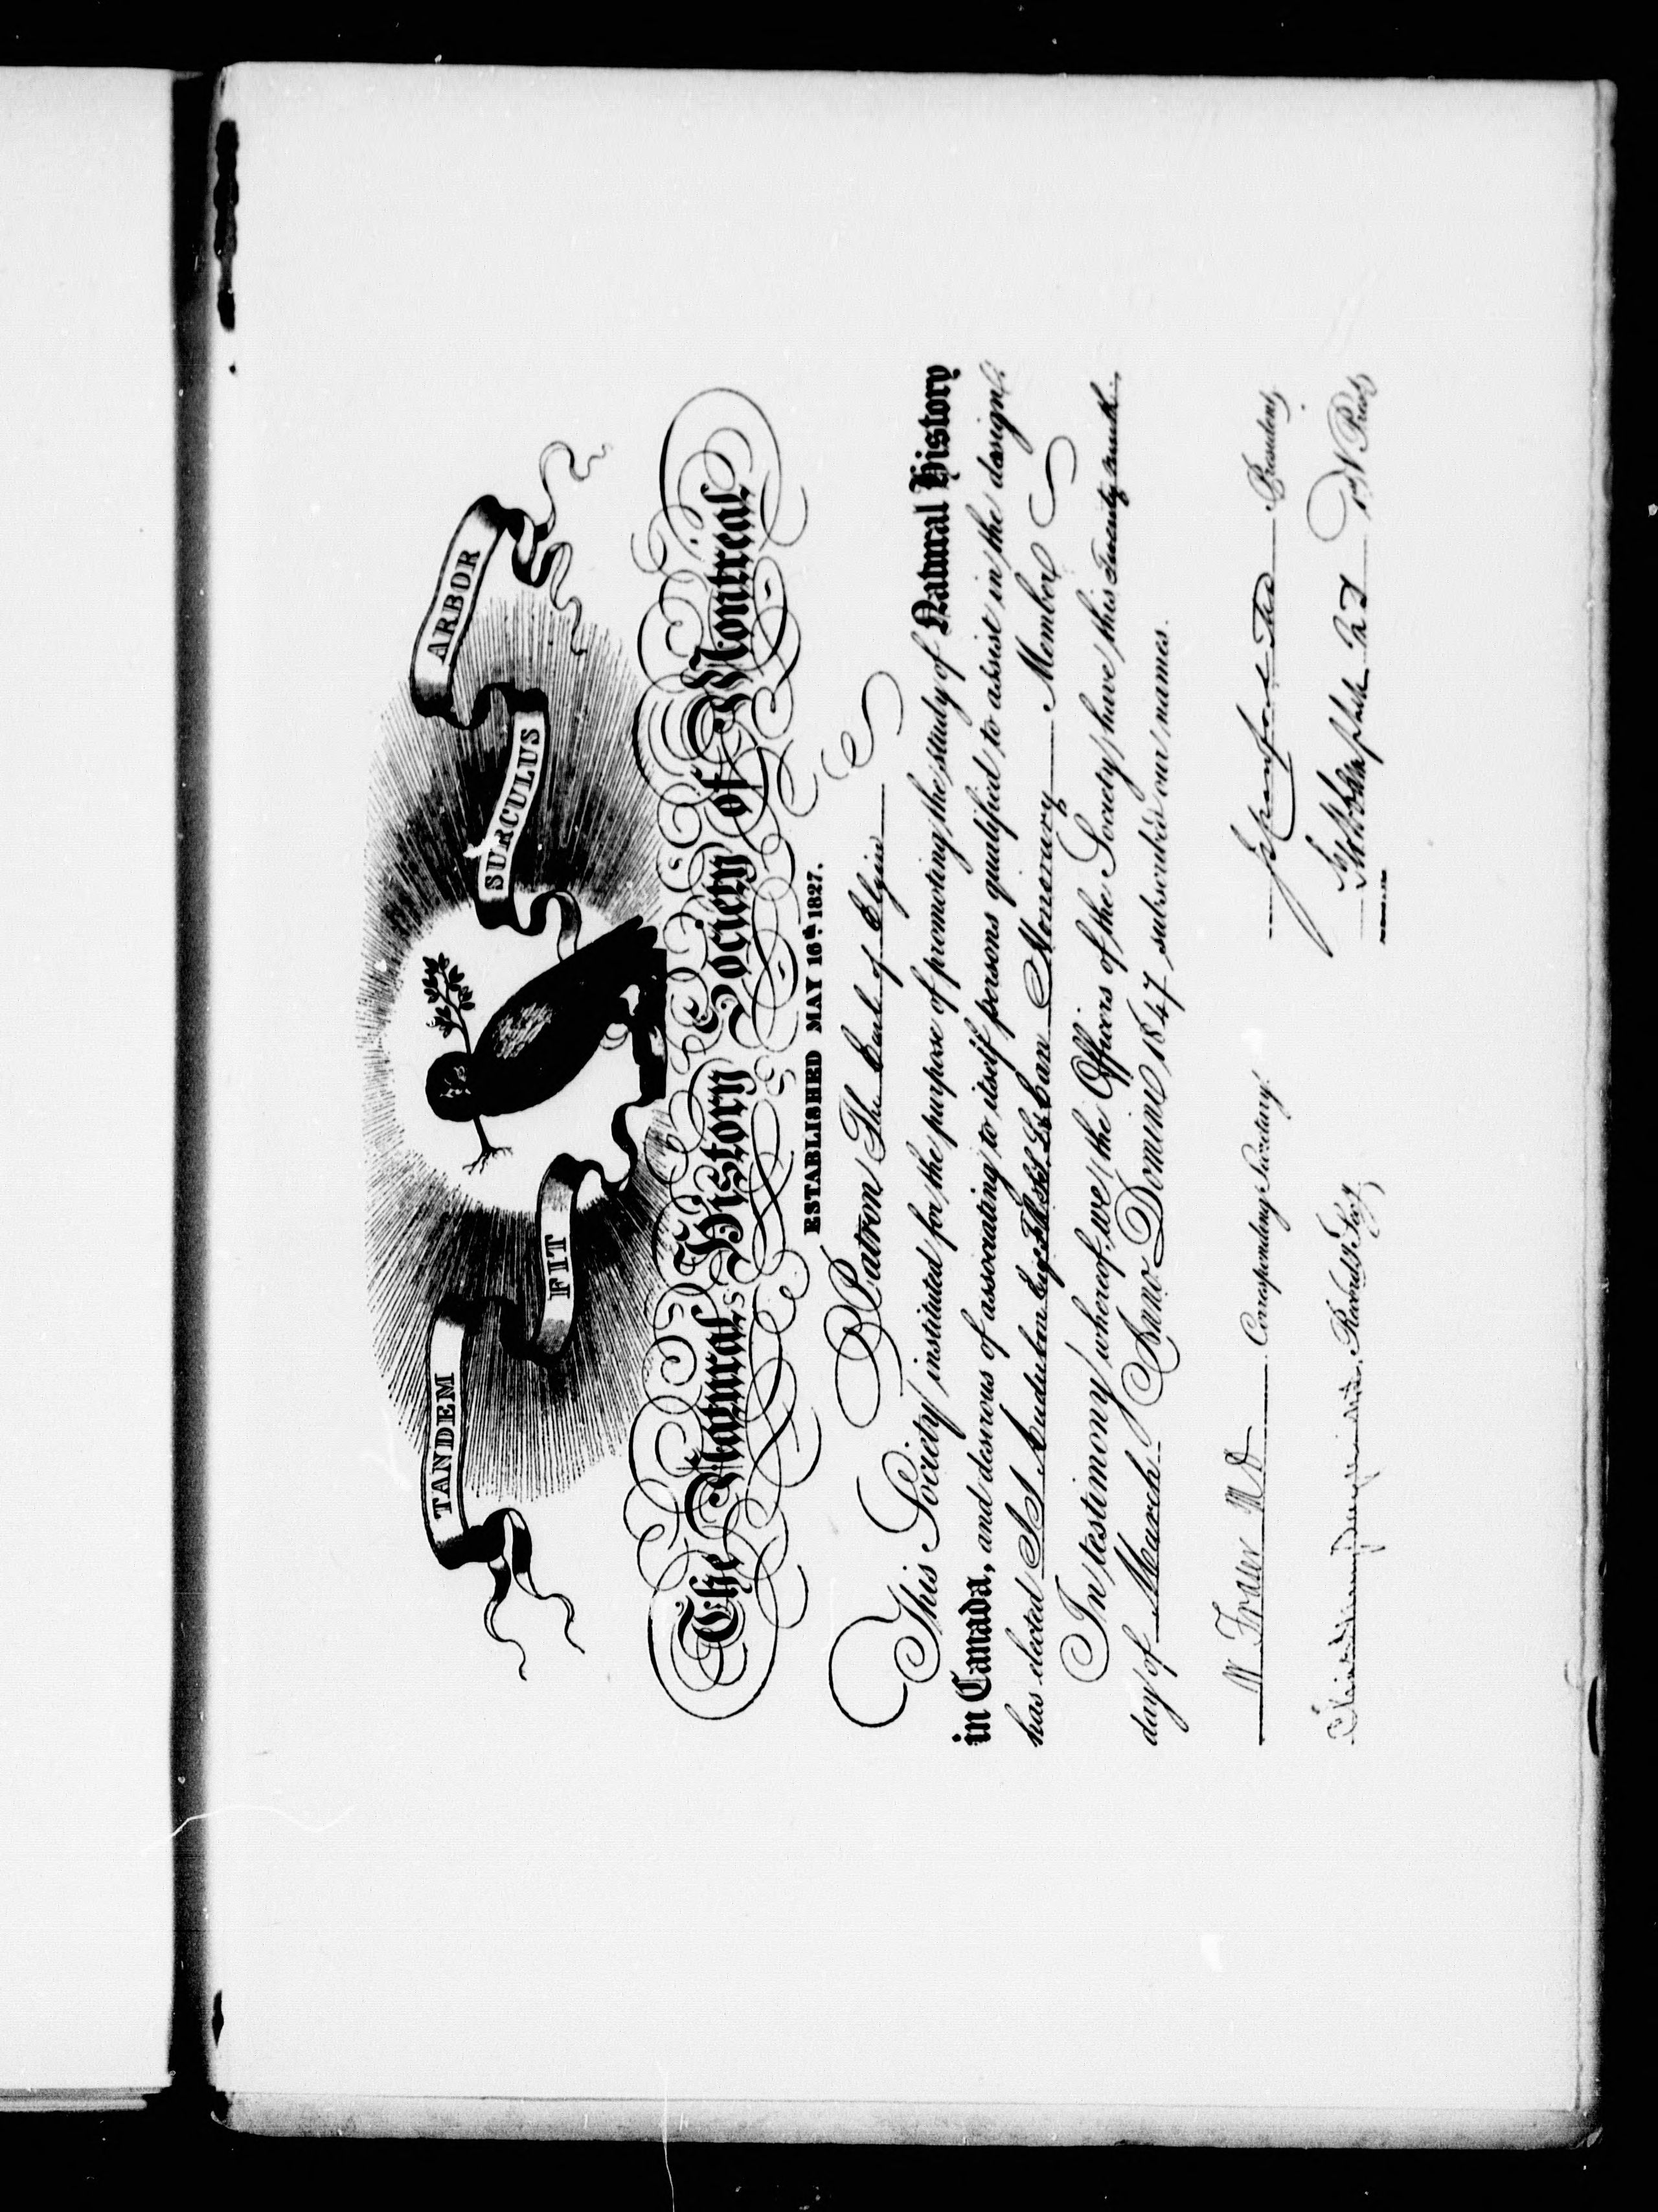 TANDEM FIT SURCULUS ARBOR
The Natural History Society of Montreal
ESTABLISHED MAY 16th 1827.
Patron The Earl of Elgin
This Society instituted for the purpose of promoting the study of Natural History
in Canada, and desirous of associating to itself persons qualified to assist in the design
has elected J J Audubon Esq Honorary Member
In testimony whereof, we the Officers of the Society have this twenty
day of March Anno Domini 1847 subscribed our names.
W Fraser MD Corresponding Secretary President
Recordg Secy V Presdt